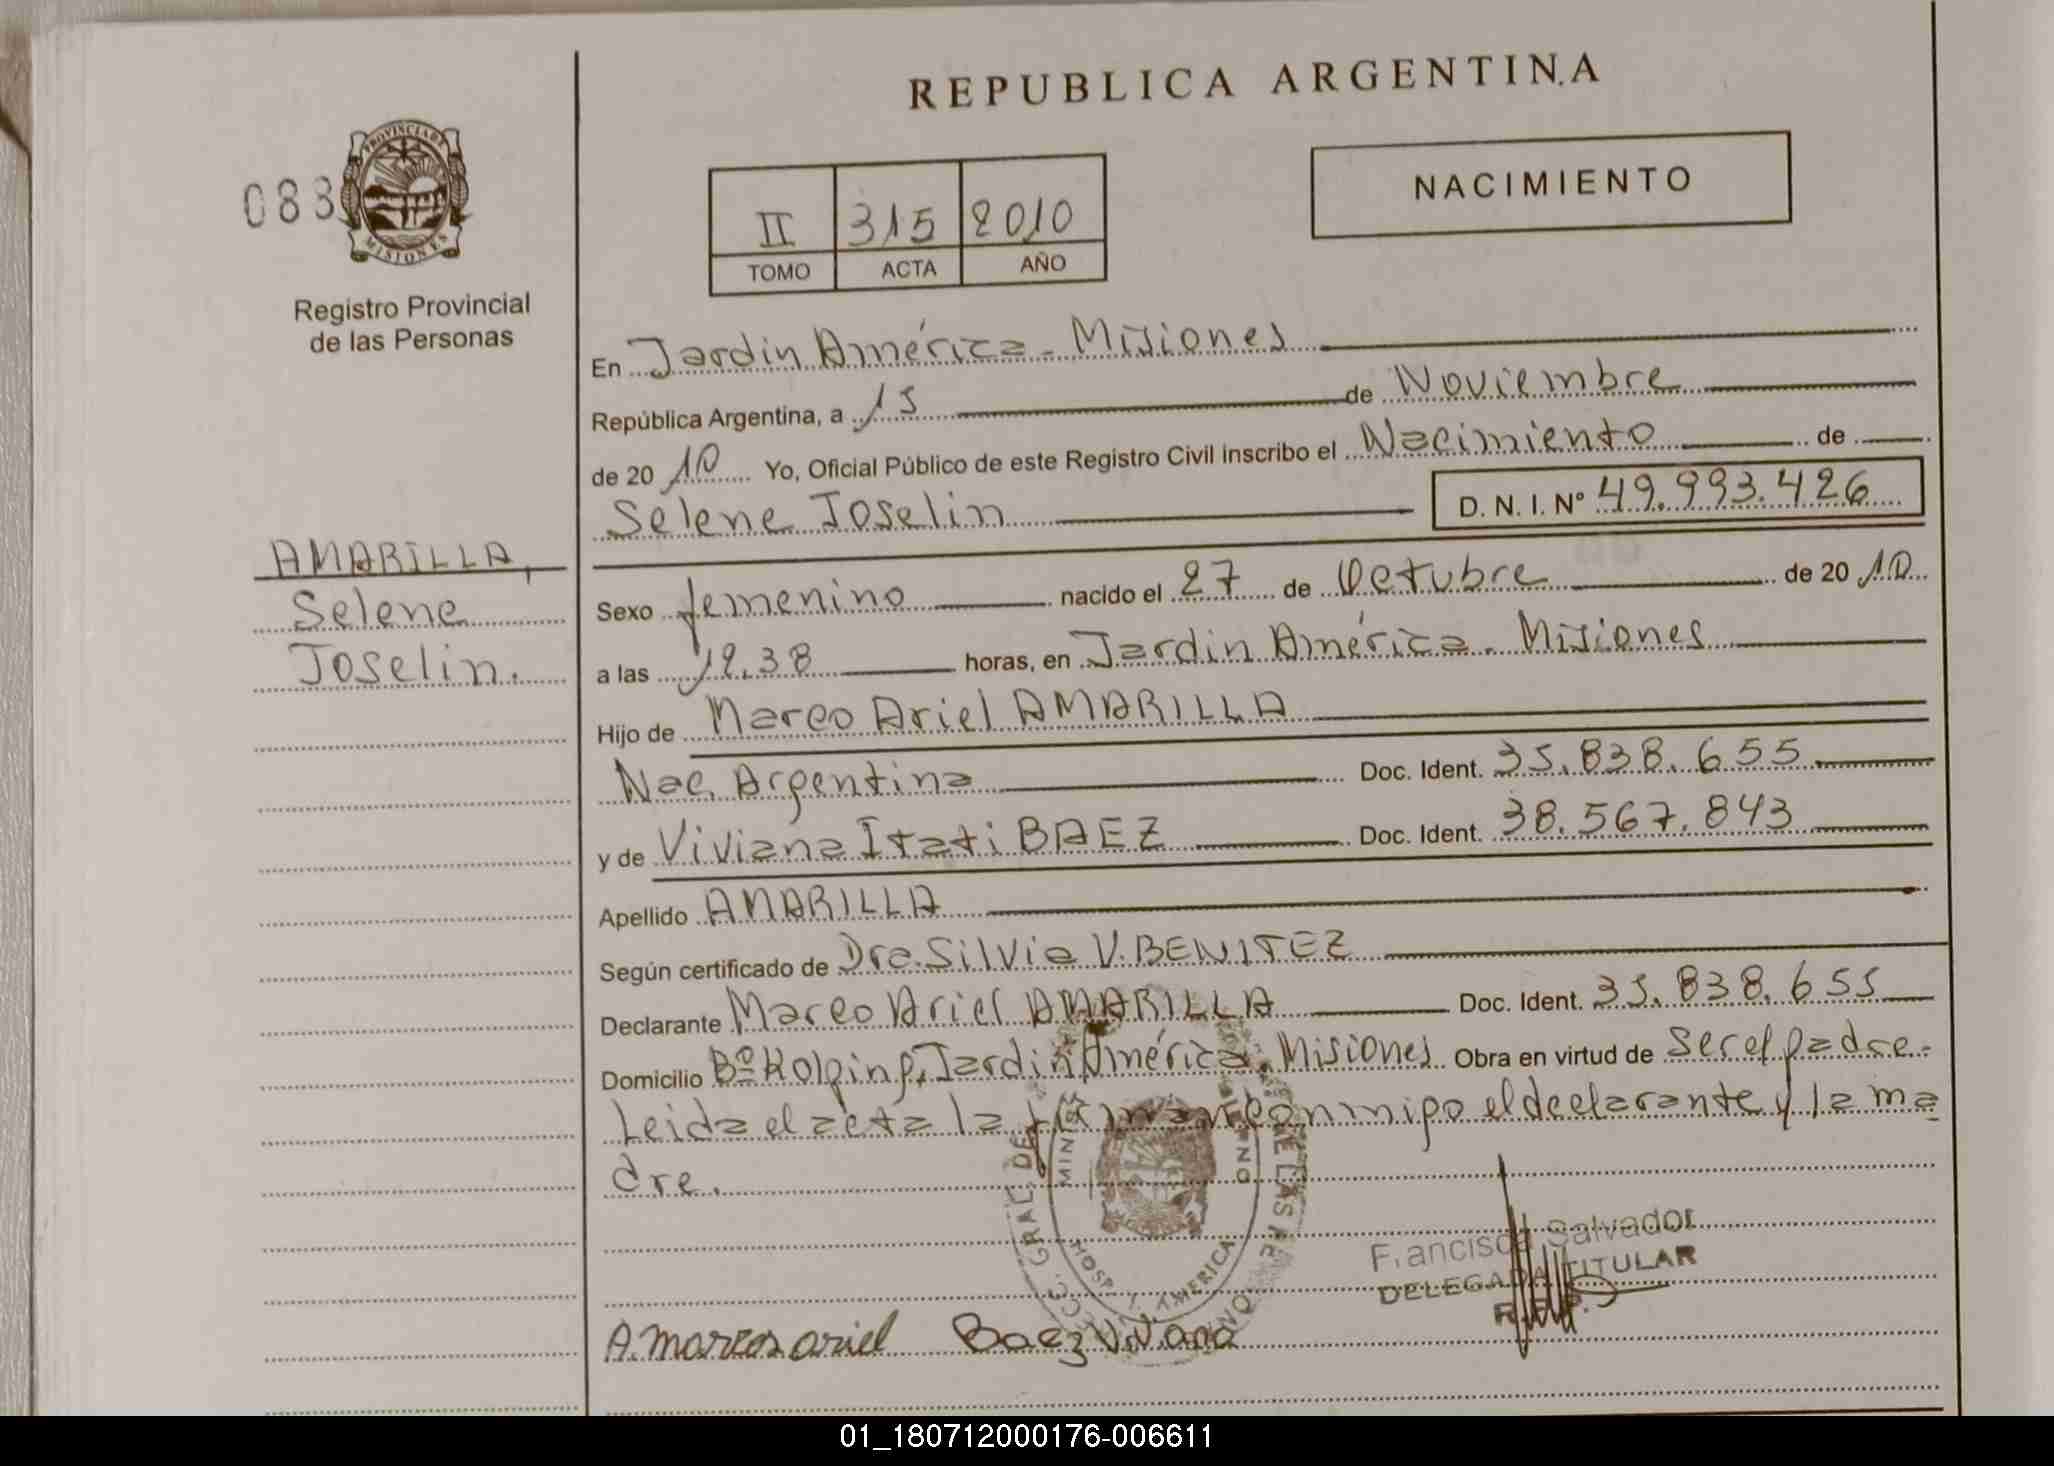 REPUBLICA ARGENTINA
083
PROVINCIA DE
MISIONES
Registro Provincial
de las Personas
II 315 2010
TOMO ACTA AÑO
NACIMIENTO
En Jardín América - Misiones
República Argentina, a 15 de Noviembre
de 2010 Yo, Oficial Público de este Registro Civil inscribo el Nacimiento de
Selene Joselin D. N. I. Nº 49.993.426
AMARILLA,
Selene
Joselin.
Sexo femenino nacido el 27 de Octubre de 2010
a las 12.38 horas, en Jardín América - Misiones
Hijo de Marco Ariel AMARILLA
Nac. Argentina Doc. Ident. 35.838.655
y de Viviana Itati BAEZ Doc. Ident. 38.567.843
Apellido AMARILLA
Según certificado de Dra. Silvia V. BENITEZ
Declarante Marco Ariel AMARILLA Doc. Ident. 35.838.655
Domicilio Bº Kolping, Jardín América. Misiones Obra en virtud de ser el padre.-
Leida el acta la firman conmigo el declarante y la ma
dre.
Francisca Salvador
DELEGADA TITULAR
R.P.P.
A. marcos ariel Baez Viviana
01_180712000176-006611